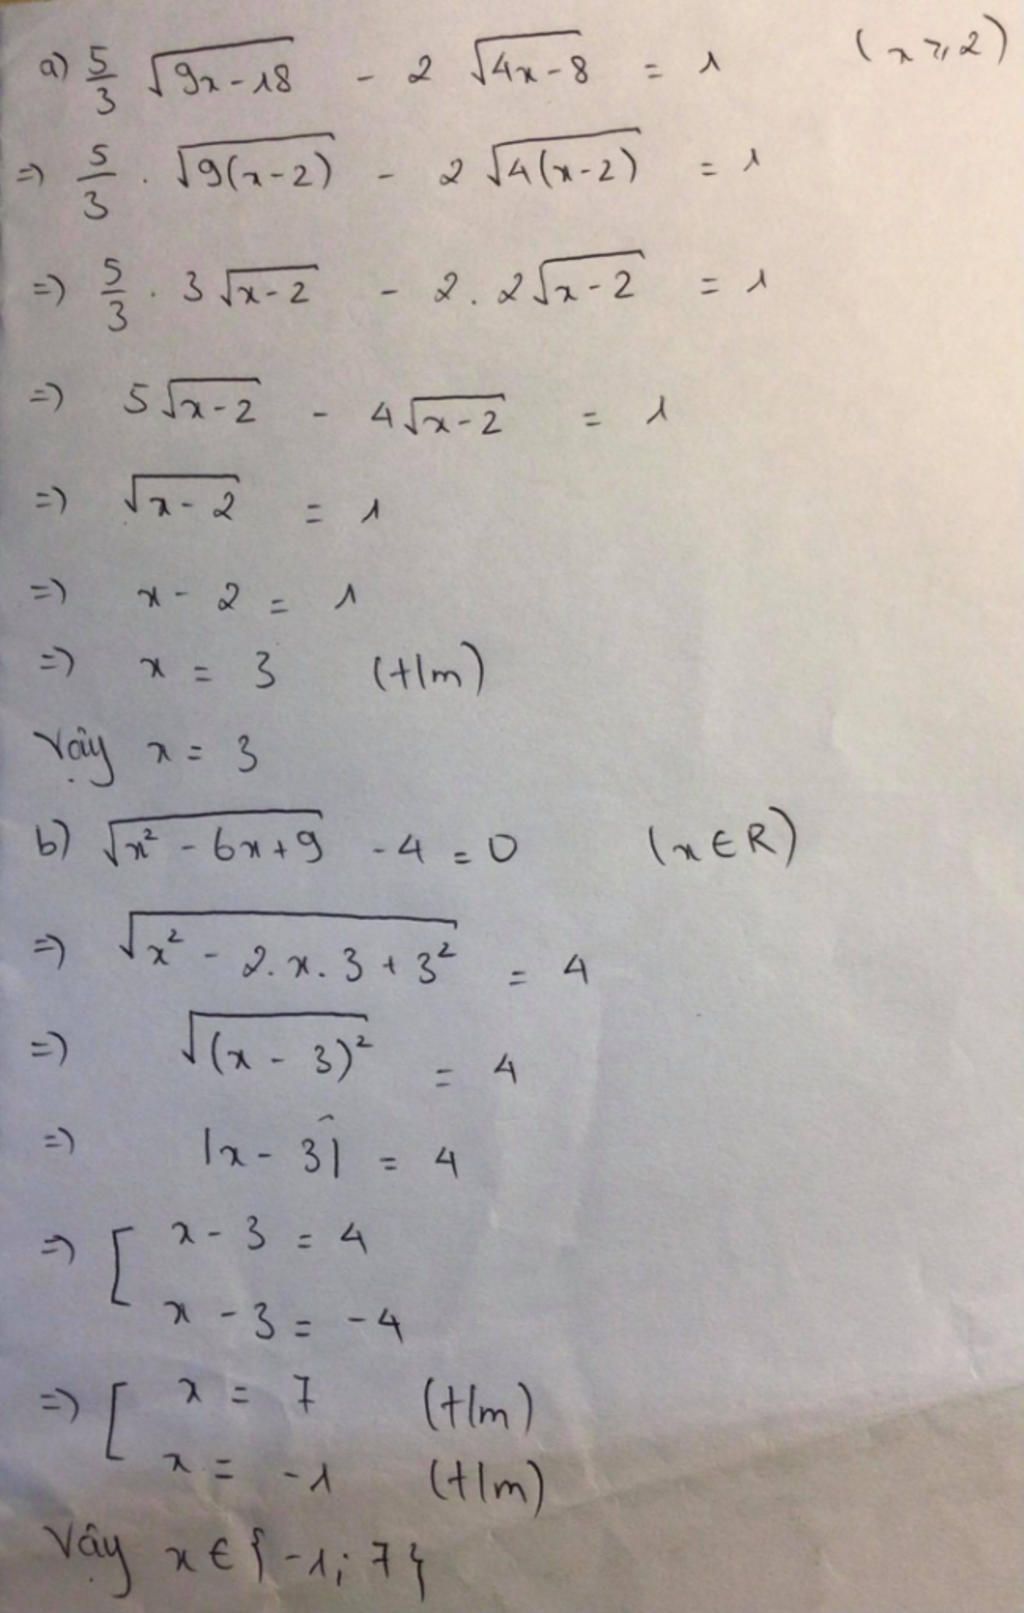 a) 5/3 √(9x-18) - 2 √(4x-8) = 1 (x ⩾ 2)
=> 5/3 . √(9(x-2)) - 2 √(4(x-2)) = 1
=> 5/3 . 3 √(x-2) - 2 . 2 √(x-2) = 1
=> 5 √(x-2) - 4 √(x-2) = 1
=> √(x-2) = 1
=> x - 2 = 1
=> x = 3 (t/m)
Vậy x = 3
b) √(x² - 6x + 9) - 4 = 0 (x ∈ R)
=> √(x² - 2.x.3 + 3²) = 4
=> √((x - 3)²) = 4
=> |x - 3| = 4
=> [ x - 3 = 4
x - 3 = -4
=> [ x = 7 (t/m)
x = -1 (t/m)
Vậy x ∈ {-1; 7}